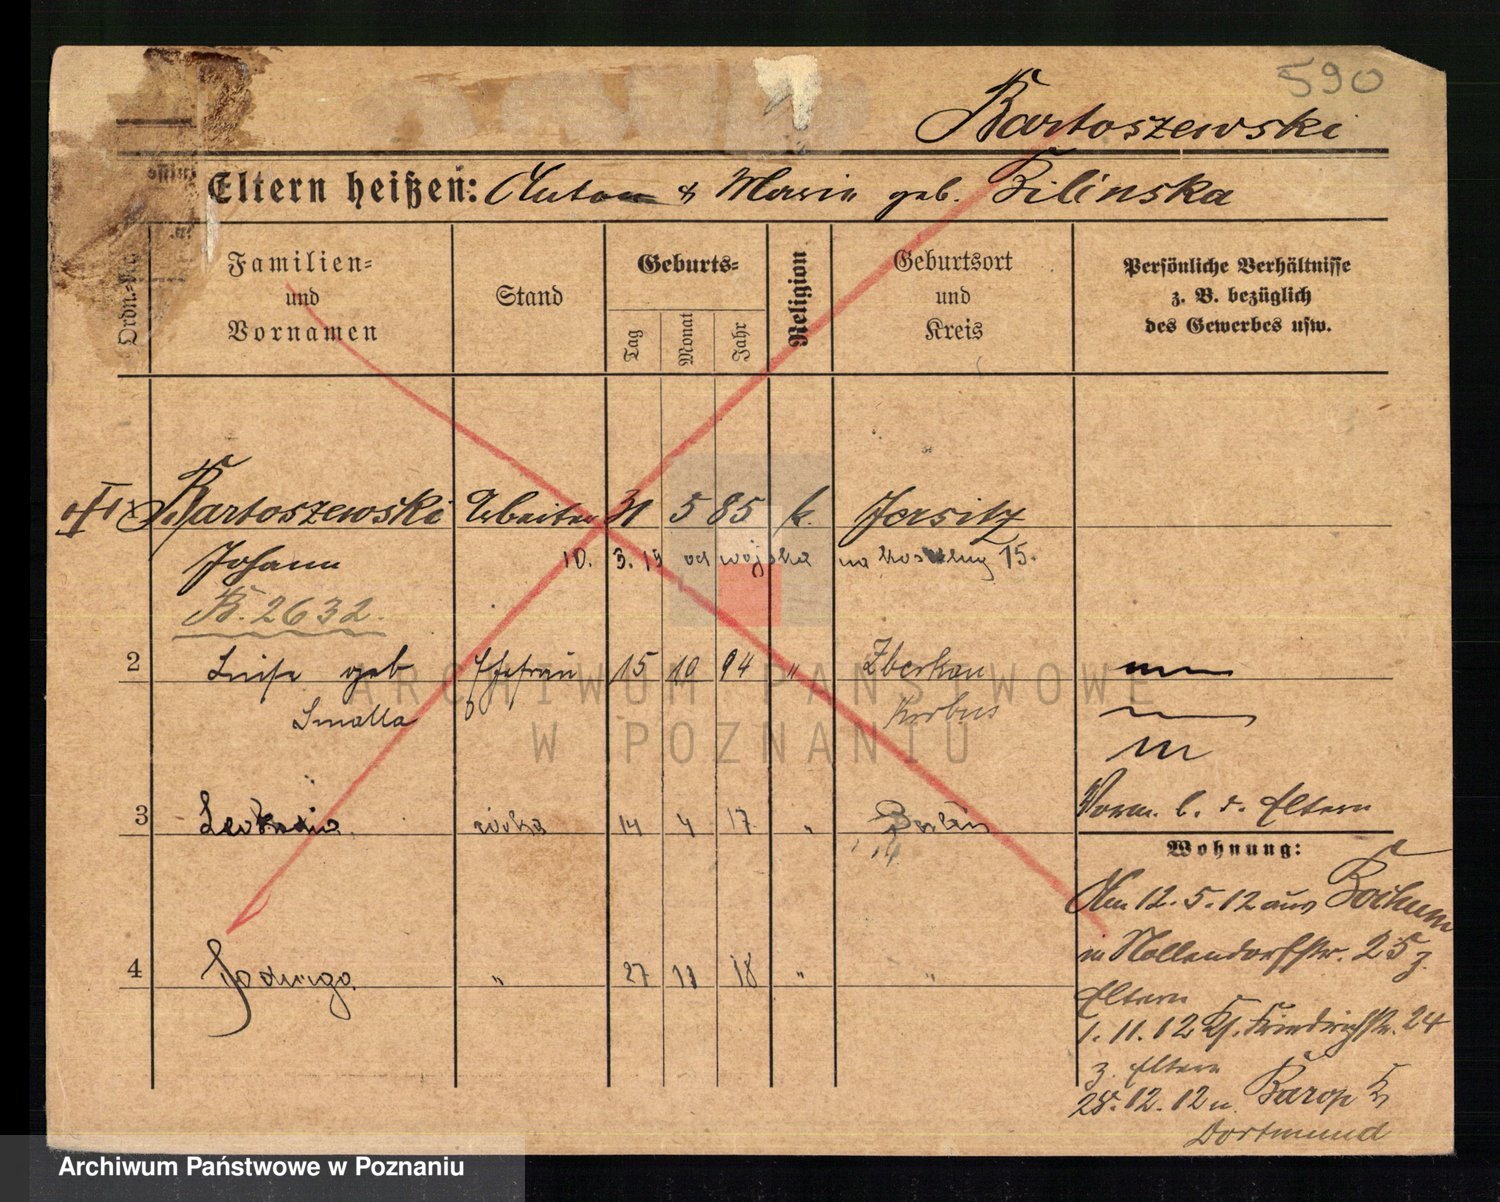 590
Bartoszewski
Eltern heißen: Anton & Marie geb. Bilinska
Ordn.-Nr.
Familien-
und
Vornamen
Stand
Geburts-
Tag
Monat
Jahr
Religion
Geburtsort
und
Kreis
Persönliche Verhältnisse
z. B. bezüglich
des Gewerbes usw.
Bartoszewski Arbeiter 31 5 85 k. Jersitz
Johann 10. 3. 19 od wojska na 15.
B. 2632.
2 Luise geb Ehefrau 15 10 94 "
Smalla
3 Leokadia córka 14 4 17 " Berlin
Vorm. b. d. Eltern
Wohnung:
Am 12.5.12 aus Bochum
in Nollendorfstr. 25 z.
Eltern
1.11.12 Ks. Friedrichstr. 24
z. Eltern
28.12.12 n. Barop Kr
Dortmund
4 Jadwiga " 27 11 18 " "
ARCHIWUM PAŃSTWOWE
W POZNANIU
Archiwum Państwowe w Poznaniu